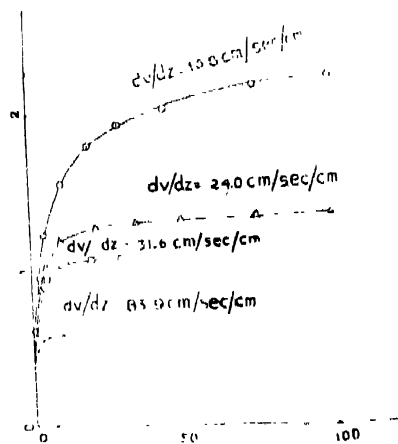 dv/dz
cm/sec/cm
2
dv/dz= 24.0 cm/sec/cm
dv/dz - 31.6 cm/sec/cm
1
dv/dz 83.9 cm/sec/cm
0
0 50 100